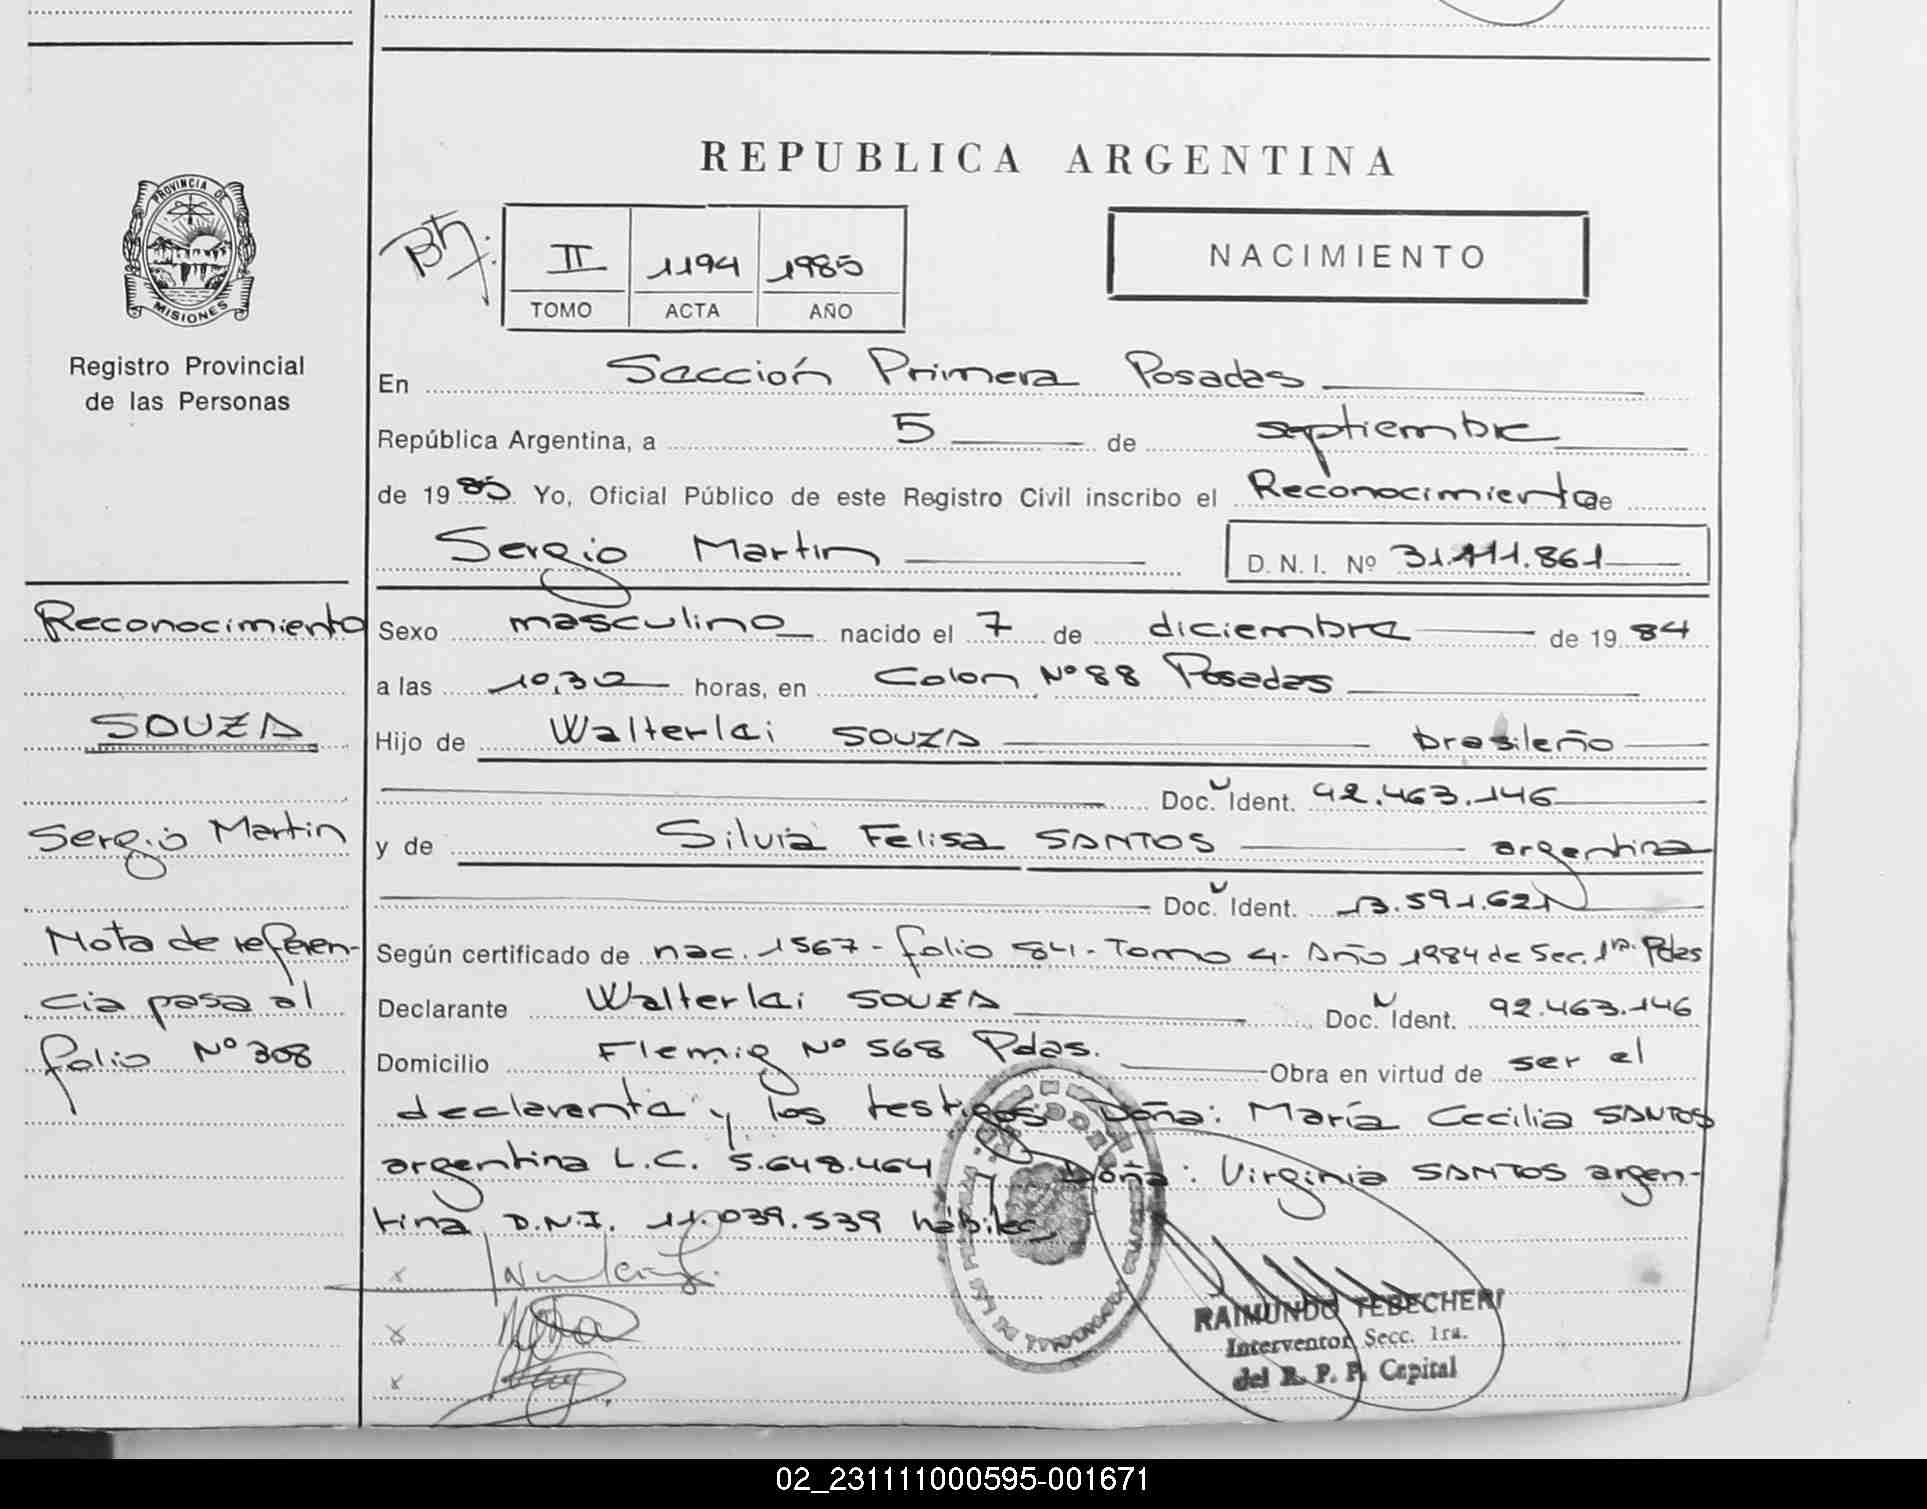 REPUBLICA ARGENTINA
PROVINCIA DE
MISIONES
Registro Provincial
de las Personas
II 1194 1985
TOMO ACTA AÑO
NACIMIENTO
En Sección Primera Posadas
República Argentina, a 5 de septiembre
de 1985 Yo, Oficial Público de este Registro Civil inscribo el Reconocimiento de
Sergio Martin D. N. I. Nº 31.111.861
Reconocimiento
SOUZA
Sergio Martin
Nota de referen-
cia pasa al
folio Nº 308
Sexo masculino nacido el 7 de diciembre de 1984
a las 10,30 horas, en Colon Nº 88 Posadas
Hijo de Walterlei SOUZA brasileño
Doc. Ident. 92.463.146
y de Silvia Felisa SANTOS argentina
Doc. Ident. 13.591.621
Según certificado de nac. 1567 - folio 84 - Tomo 4 - Año 1984 de Sec. 1ra. Pdas
Declarante Walterlei SOUZA Doc. Ident. 92.463.146
Domicilio Flemig Nº 568 Pdas. Obra en virtud de ser el
declarante y los testigos Doña: María Cecilia SANTOS
argentina L.C. 5.648.464 y Doña: Virginia SANTOS argen-
tina D.N.I. 11.039.539 hábiles
RAIMUNDO TEBECHERI
Interventor Secc. 1ra.
del R. P. P. Capital
02_231111000595-001671